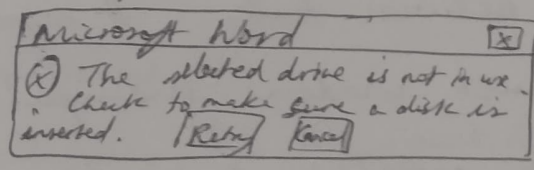 Microsoft Word X
X The selected drive is not in use.
Check to make sure a disk is
inserted. Retry Cancel